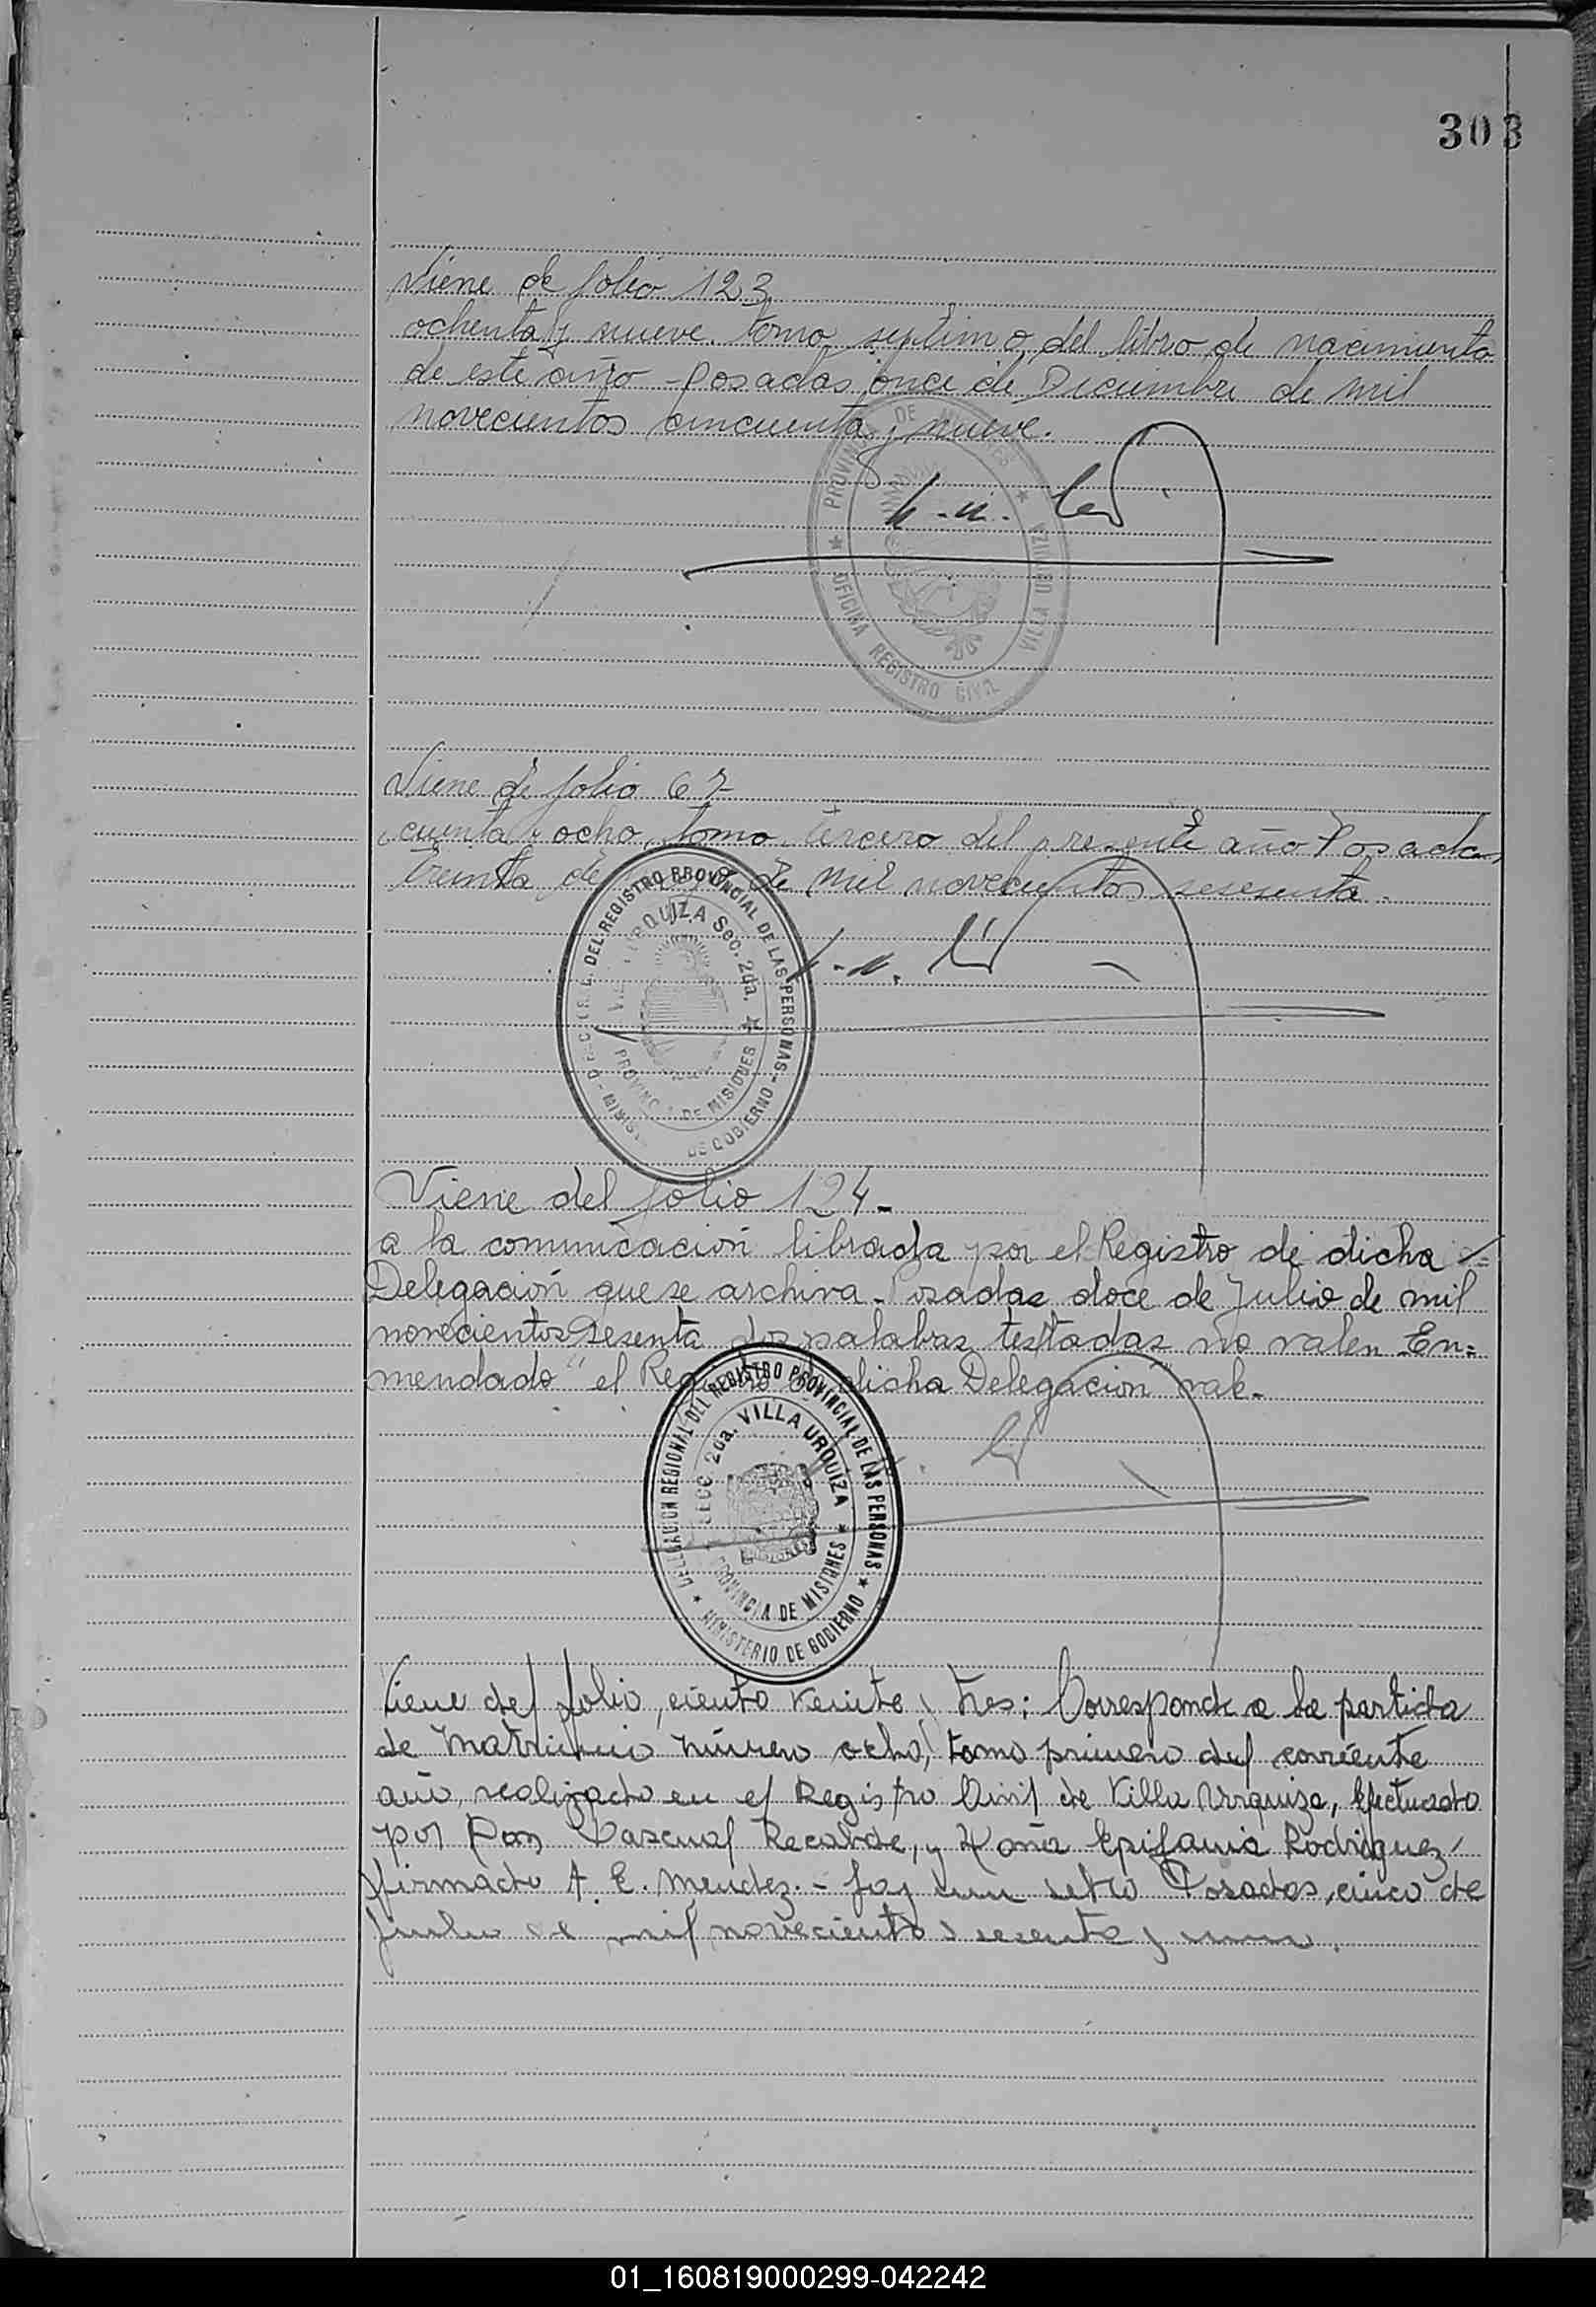 303
Viene de folio 123
ochenta y nueve. tomo septimo del libro de nacimiento
de este año - Posadas once de Diciembre de mil
novecientos cincuenta y nueve.
PROVINCIA DE MISIONES
VILLA URQUIZA
OFICINA REGISTRO CIVIL
Viene de folio 67
cuenta y ocho, tomo tercero del presente año Posadas,
treinta de de mil novecientos sesesenta.
DEL REGISTRO PROVINCIAL DE LAS PERSONAS - DE GOBIERNO
URQUIZA Sec. 2da.
PROVINCIA DE MISIONES
Viene del folio 124-
a la comunicación librada por el Registro de dicha
Delegación que se archiva - Posadas doce de Julio de mil
novecientos sesenta dos palabras testadas no valen En=
mendado "el Registro de dicha Delegación" vale-
DELEGACION REGIONAL DEL REGISTRO PROVINCIAL DE LAS PERSONAS
MINISTERIO DE GOBIERNO
SECC 2da. VILLA URQUIZA
PROVINCIA DE MISIONES
Viene del folio, ciento veinte y tres: Corresponde a la partida
de Matrimonio número ocho, tomo primero del corriente
año, realizado en el Registro Civil de Villa Urquiza, efectuado
por Don Pascual Recalde, y Doña Epifania Rodriguez
firmado A. E. Mendez. - hay un sello Posadas, cinco de
de mil novecientos sesenta y uno.
01_160819000299-042242